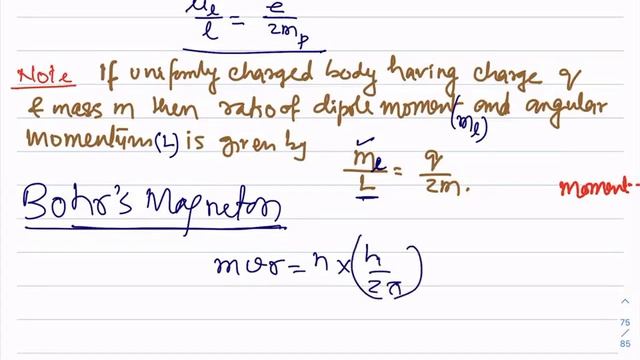 μl/l = e/2mp
Note If uniformly charged body having charge q
& mass m then ratio of dipole moment (ml) and angular
momentum (L) is given by
ml/L = q/2m.
moment
Bohr's Magneton
mvr = n × (h/2π)
75
/
85